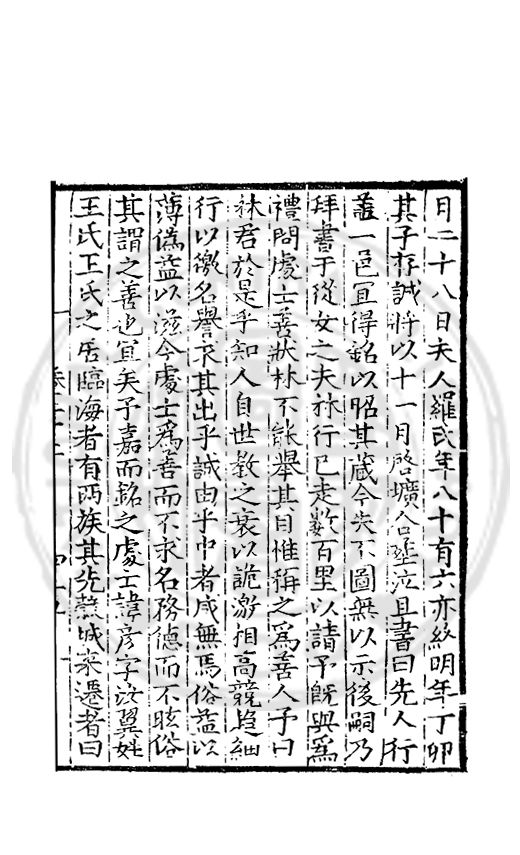 月二十八日夫人羅氏年八十有六亦終明年丁卯
其子存誠將以十一月啓壙合塟泣且書曰先人行
蓋一邑宜得銘以昭其蔵今失不圖無以示後嗣乃
拜書于從女之夫林行已走數百里以請予既與為
禮問處士善狀林不能舉其目惟稱之為善人予曰
林君於是乎知人自世教之衰以詭激相高競趋細
行以徼名譽求其出乎誠由乎中者咸無焉俗益以
薄偽益以滋今處士爲善而不求名務德而不眩俗
其謂之善也宜矣予嘉而銘之處士諱彦字汝翼姓
王氏王氏之居臨海者有两族其先 城來遷者曰